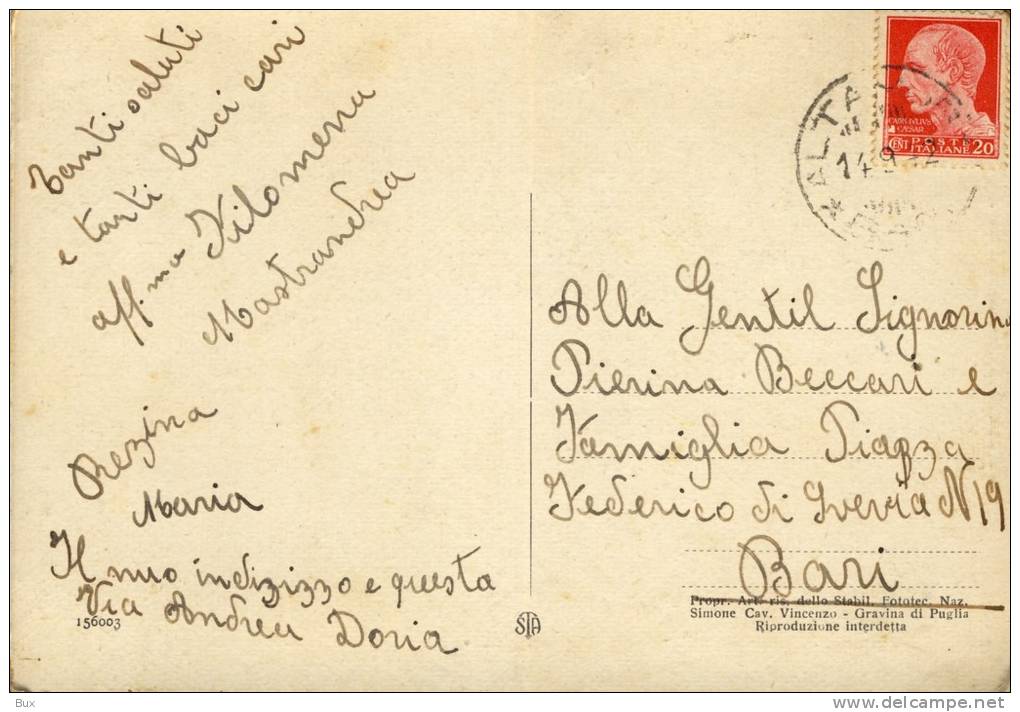 Tanti saluti
e tanti baci cari
aff.ma Filomena
Mastrandrea
Rezina
Maria
Il muo indizizzo e questa
Via Andrea Doria
156003
STA
CENT POSTE ITALIANE 20
CAIVS IVLIVS
CAESAR
ALTAMURA
14 9
Alla Gentil Signorina
Pierina Beccari e
Famiglia Piazza
Federico di Svevia N 19
Bari
Propr. Art. ris. dello Stabil. Fototec. Naz.
Simone Cav. Vincenzo - Gravina di Puglia
Riproduzione interdetta
Bux
www.delcampe.net